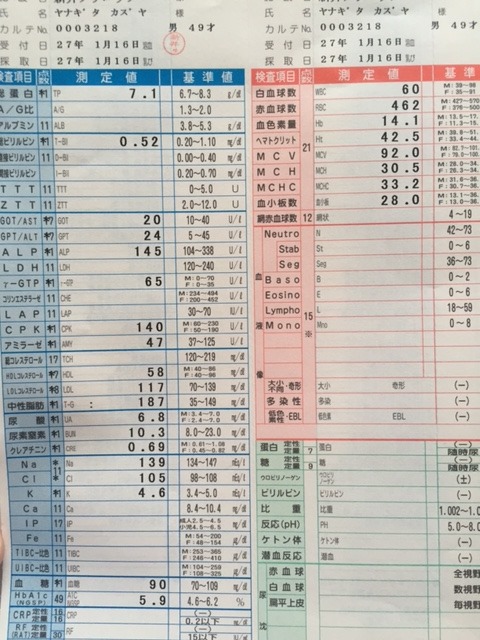 氏 名 ヤナギタ カズヤ 様
カルテNo. 0003218 男 49才
受付日 27年 1月16日
採取日 27年 1月16日
検査項目 日数 測定値 基準値
総蛋白 TP 7.1 6.7~8.3 g/dl
A/G比 A/G 1.3~2.0
アルブミン 11 ALB 3.8~5.3 g/dl
総ビリルビン T-BI 0.52 0.20~1.10 mg/dl
直接ビリルビン 11 D-BI 0.00~0.40 mg/dl
間接ビリルビン 11 I-BI 0.20~0.70 mg/dl
TTT 11 TTT 0~5.0 U
ZTT 11 ZTT 2.0~12.0 U
GOT/AST GOT 20 10~40 U/ℓ
GPT/ALT GPT 24 5~45 U/ℓ
ALP ALP 145 104~338 U/ℓ
LDH 11 LDH 120~240 U/ℓ
γ-GTP γ-GTP 65 M:0~70 F:0~35 U/ℓ
コリンエステラーゼ 11 CHE M:234~494 F:200~452 U/ℓ
LAP 11 LAP 30~70 U/ℓ
CPK CPK 140 M:60~230 F:50~190 U/ℓ
アミラーゼ AMY 47 37~125 U/ℓ
総コレステロール 17 TCH 120~219 mg/dl
HDLコレステロール HDL 58 M:40~86 F:40~96 mg/dl
LDLコレステロール LDL 117 70~139 mg/dl
中性脂肪 T-G : 187 35~149 mg/dl
尿酸 UA 6.8 M:3.4~7.0 F:2.4~7.0 mg/dl
尿素窒素 BUN 10.3 8.0~23.0 mg/dl
クレアチニン CRE 0.69 M:0.61~1.08 F:0.45~0.82 mg/dl
Na Na 139 134~147
Cl 11 Cl 105 98~108
K K 4.6 3.4~5.0
Ca 11 Ca 8.4~10.4 mg/dl
IP 17 IP 成人2.5~4.5 小児4.5~6.5 mg/dl
Fe 11 Fe M:54~200 F:48~154
TIBC-比色 11 TIBC M:253~365 F:246~410
UIBC-比色 11 UIBC M:104~259 F:108~325
血糖 血糖 90 70~109 mg/dl
HbA1c (NGSP) 49 A1C NGSP 5.9 4.6~6.2 %
CRP 定性 定量 16 16 CRP (ー) 0.2以下
RF 定性 (RAテスト) 定量 30 RF (ー) 15以下
氏 名 ヤナギタ カズヤ 様
カルテNo. 0003218 男 49才
受付日 27年 1月16日
採取日 27年 1月16日
検査項目 日数 測定値 基準値
白血球数 WBC 60 M:39~98 F:35~91
赤血球数 RBC 462 M:427~570 F:376~500
血色素量 Hb 14.1 M:13.5~17. F:11.3~15.
ヘマトクリット 21 Ht 42.5 M:39.8~51. F:33.4~44.
MCV MCV 92.0
MCH MCH 30.5
MCHC MCHC 33.2
血小板数 血小板 28.0
網赤血球数 12 網状 4~19
血液像 15 ※
Neutro N 42~73
Stab St 0~6
Seg Seg 36~73
Baso B 0~2
Eosino E 0~6
Lympho L 18~59
Mono Mno 0~8
大小不同・奇形 大小 奇形 (ー)
多染性 多染 (ー)
低色素性・EBL 低色素 EBL (ー)
蛋白 定性 定量 7 蛋白 (ー) 随時尿
糖 定性 定量 9 糖 (ー) 随時尿
ウロビリノーゲン ウロビリノーゲン (±)
ビリルビン ビリルビン (ー)
比重 比重 1.002~1.0
反応(pH) PH 5.0~8.0
ケトン体 ケトン体 (ー)
潜血反応 潜血 (ー)
尿沈
赤血球 全視野
白血球 数視野
扁平上皮 毎視野